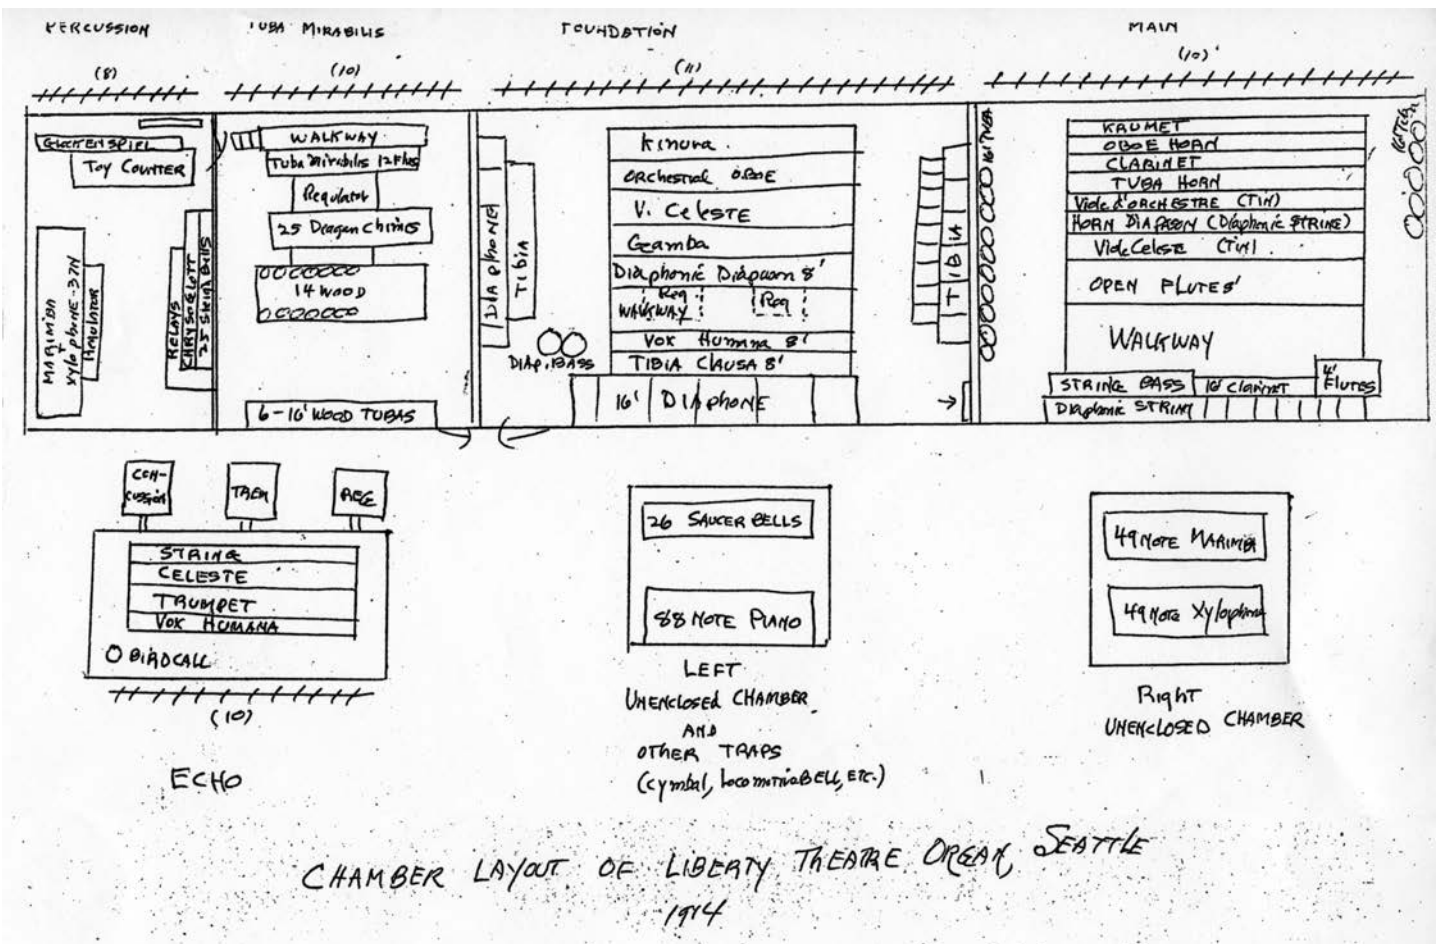 PERCUSSION
TUBA MIRABILIS
FOUNDATION
MAIN
(8)
(10)
(11)
(10)'
GLOCKENSPIEL
TOY COUNTER
MARIMBA
+
Xylophone-37N
Regulator
RELAYS
CHRYSOGLOTT
25 Sleigh Bells
WALKWAY
Tuba Mirabilis 12 Flues
Regulator
25 Deagan Chimes
14 WOOD
6-16' WOOD TUBAS
DIAPHONE
TIBIA
DIAP. BASS
Kinura
ORchestral OBOE
V. Celeste
Gamba
Diaphonic Diapason 8'
Reg
Reg
WALKWAY
Vox Humana 8'
TIBIA CLAUSA 8'
16' DIAPHONE
TIBIA
16' TUBA
KRUMET
OBOE HORN
CLARINET
TUBA HORN
Viole d'ORCHESTRE (TIN)
HORN DIAPASON (Diaphonic STRING)
Viole Celeste (TIN)
OPEN FLUTES'
WALKWAY
STRING BASS
16' Clarinet
4' FLUTES
Diaphonic STRING
CON-
CUSSION
TREM
REG
STRING
CELESTE
TRUMPET
VOX HUMANA
BIRDCALL
(10)
ECHO
26 SAUCER BELLS
88 NOTE PIANO
LEFT
UNENCLOSED CHAMBER
AND
OTHER TRAPS
(cymbal, Locomotive BELL, ETC.)
49 NOTE MARIMBA
49 NOTE Xylophone
Right
UNENCLOSED CHAMBER
CHAMBER LAYOUT OF LIBERTY THEATRE ORGAN, SEATTLE
1914